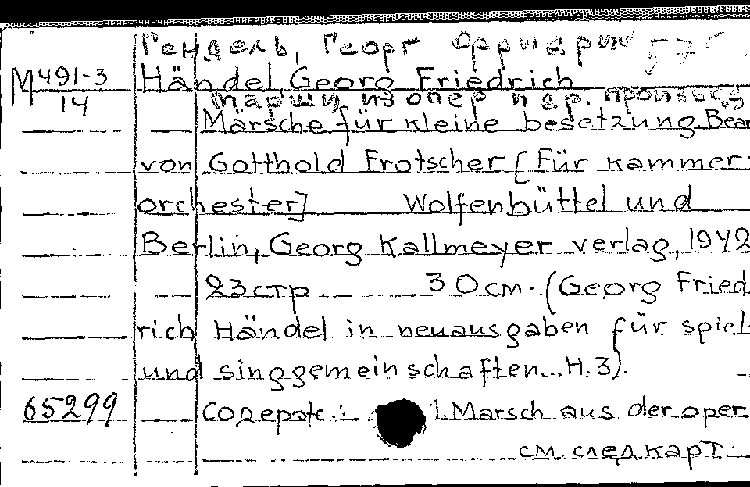 Гендель, Георг Фридрих
М 491-3 Händel Georg Friedrich
14 марши из опер и др. произвед
Märsche für kleine besetzung Bear
von Gotthold Frotscher [Für kammer-
orchester] Wolfenbüttel und
Berlin, Georg Kallmeyer verlag, 1942
23 стр 30 см. (Georg Fried-
rich Händel in neuausgaben für spiel-
und singgemeinschaften... H. 3).
65299 Содерж.: 1. Marsch aus der oper
см. след карт.